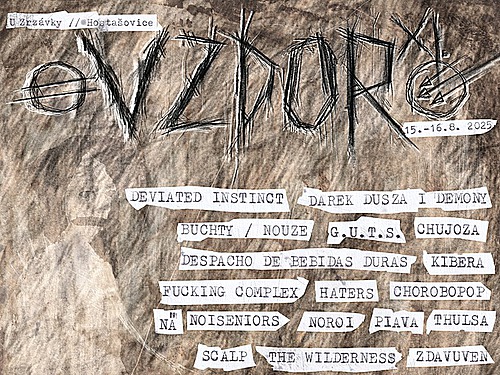 U Zrzávky // Hostašovice
VZDOR XI
15.-16.8. 2025
DEVIATED INSTINCT DAREK DUSZA I DEMONY
BUCHTY / NOUZE G.U.T.S. CHUJOZA
DESPACHO DE BEBIDAS DURAS KIBERA
FUCKING COMPLEX HATERS CHOROBOPOP
NÄ NOISENIORS NOROI PIAVA THUISA
SCALP THE WILDERNESS ZDAVUVEN